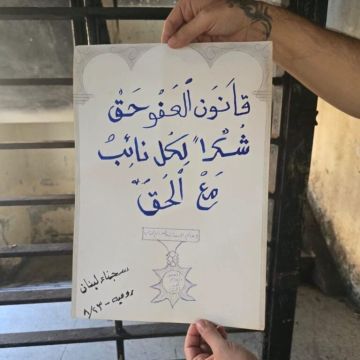 قانون العفو حق
شكراً لكل نائب
مع الحق
سجناء لبنان
رومية - ٨/٢٣